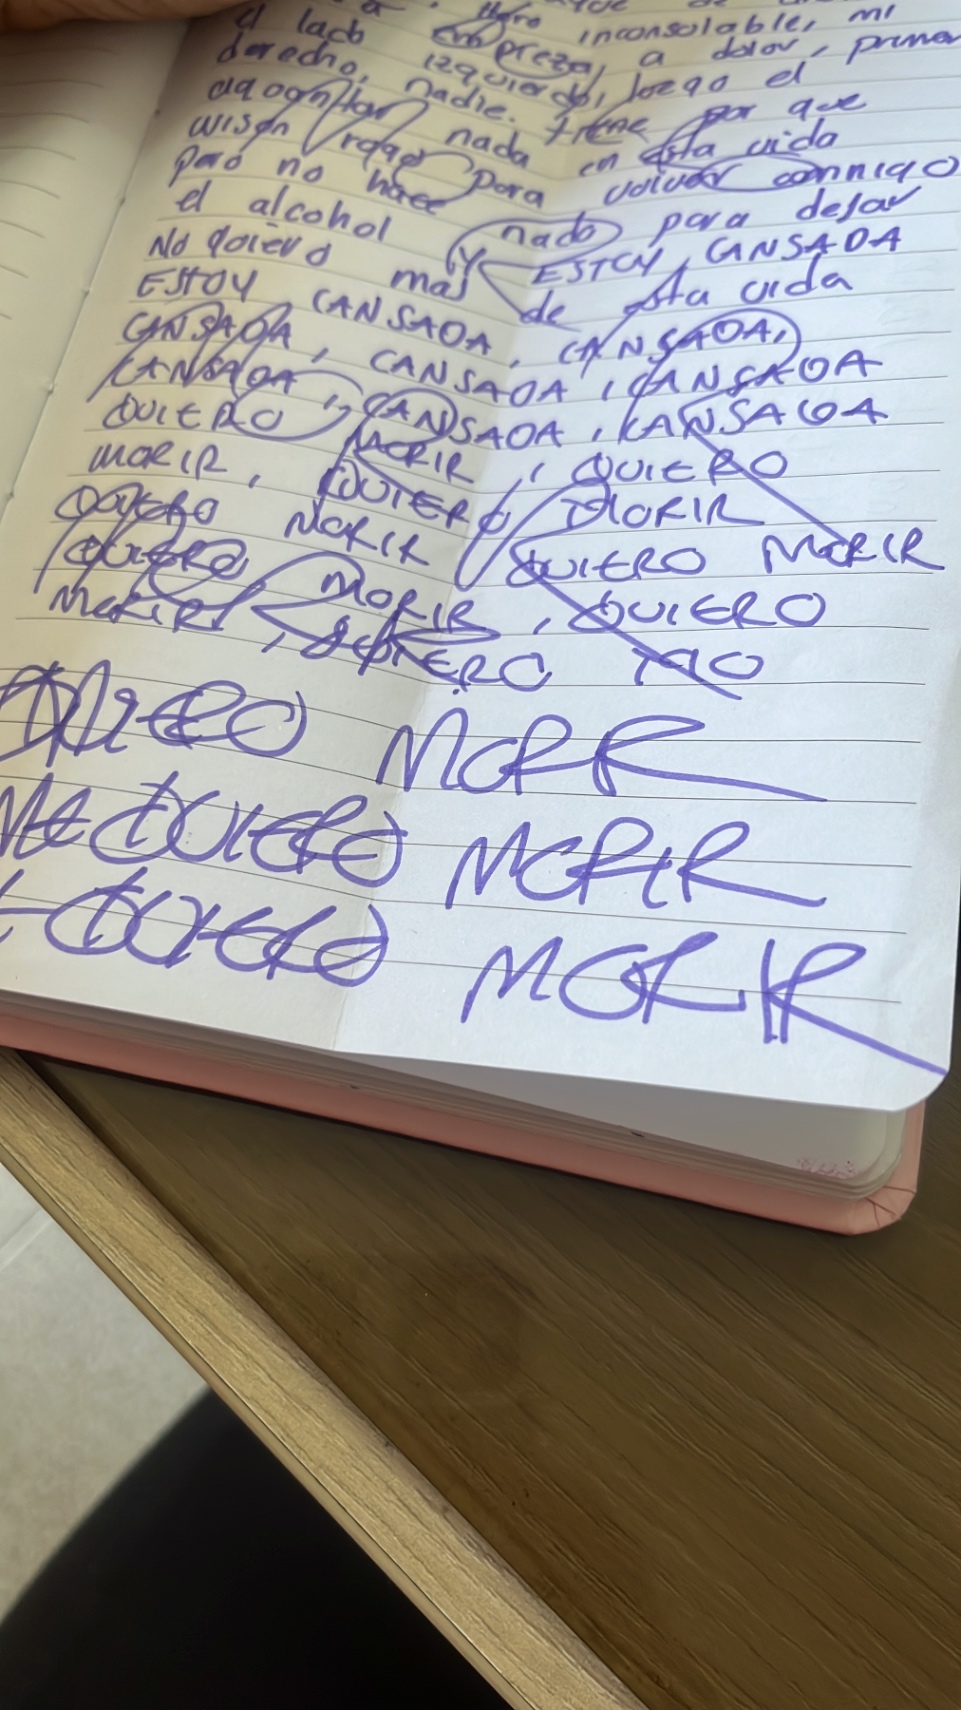 inconsolable, mi
el lado empreza, a dolor, primer
derecho, izquierdo, luego el
nadie. tiene por que
aguantar nada en esta vida
wison rogo para volver conmigo
pero no hace nada para dejar
el alcohol y ESTOY CANSADA
No quiero mas de esta vida
ESTOY CANSADA, CANSADA,
CANSADA, CANSADA, CANSADA
CANSADA, CANSADA, CANSADA
QUIERO MORIR, QUIERO
MORIR, QUIERO MORIR
QUIERO MORIR QUIERO MORIR
QUIERO MORIR, QUIERO
MORIR, QUIERO
QUIERO MORIR
ME QUIERO MORIR
QUIERO MORIR